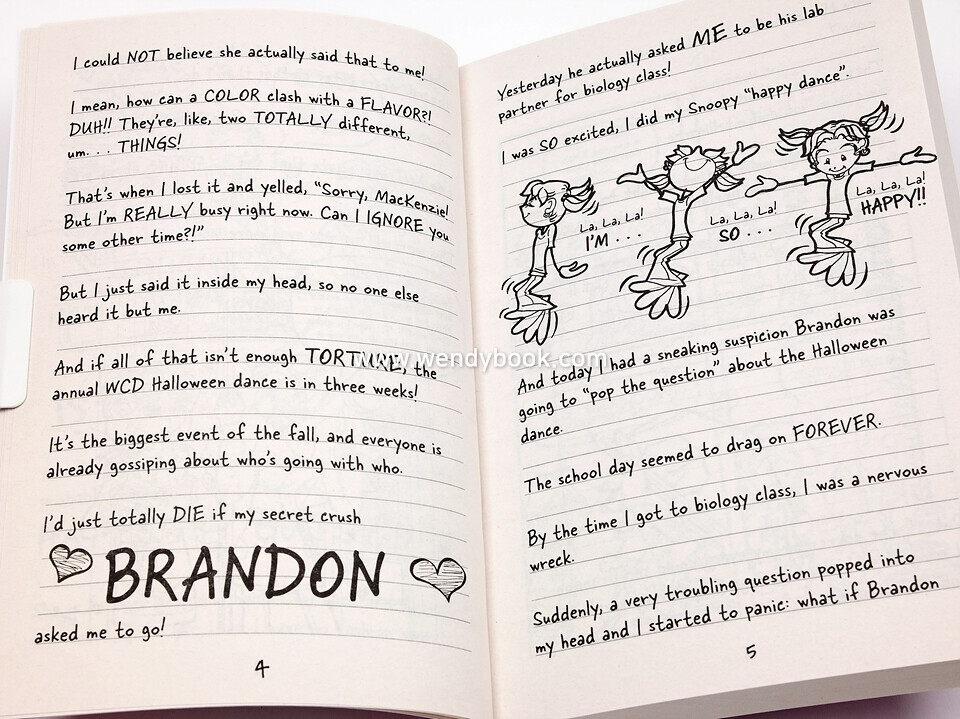 I could NOT believe she actually said that to me!
I mean, how can a COLOR clash with a FLAVOR?!
DUH!! They're, like, two TOTALLY different,
um. . . THINGS!
That's when I lost it and yelled, "Sorry, MacKenzie!
But I'm REALLY busy right now. Can I IGNORE you
some other time?!"
But I just said it inside my head, so no one else
heard it but me.
And if all of that isn't enough TORTURE, the
annual WCD Halloween dance is in three weeks!
It's the biggest event of the fall, and everyone is
already gossiping about who's going with who.
I'd just totally DIE if my secret crush
BRANDON
asked me to go!
4
Yesterday he actually asked ME to be his lab
partner for biology class!
I was SO excited, I did my Snoopy "happy dance".
La, La, La!
I'M . . .
La, La, La!
SO . . .
La, La, La!
HAPPY!!
And today I had a sneaking suspicion Brandon was
going to "pop the question" about the Halloween
dance.
The school day seemed to drag on FOREVER.
By the time I got to biology class, I was a nervous
wreck.
Suddenly, a very troubling question popped into
my head and I started to panic: what if Brandon
5
www.wendybook.com